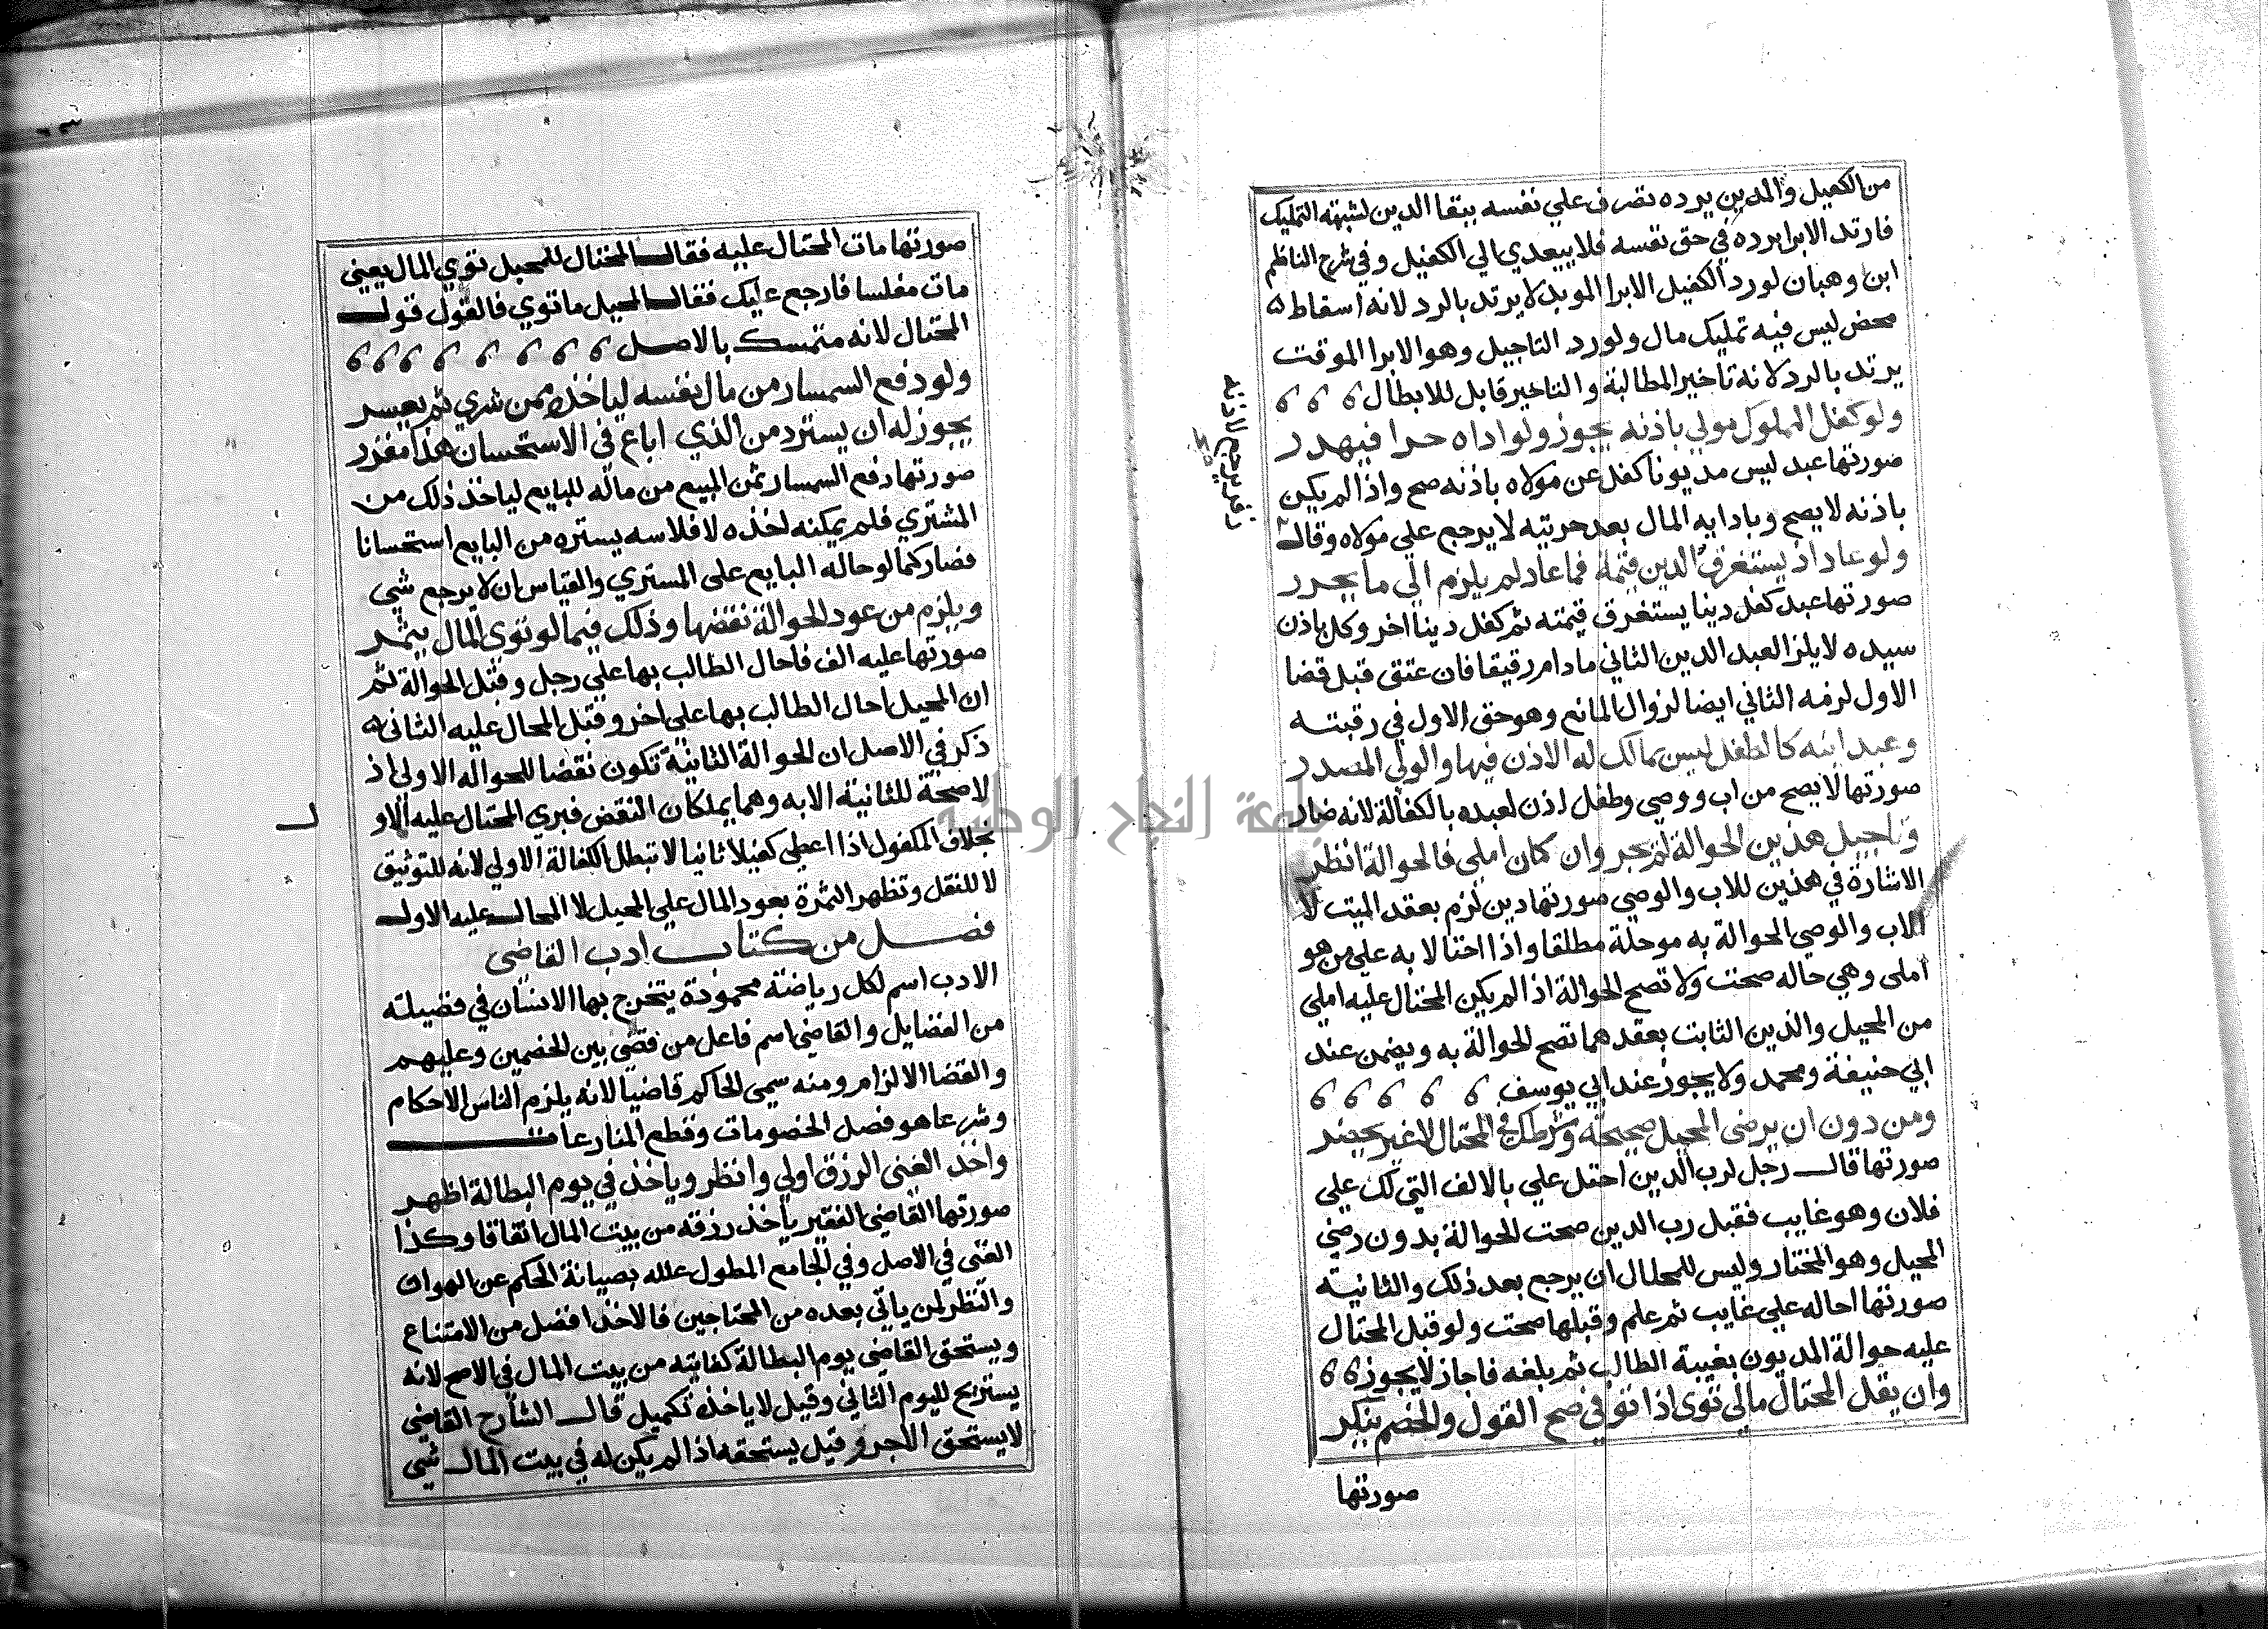 من الكفيل والمدين يرده تصرف علي نفسه ببقا الدين لشبهة التمليك
فارتد الابرا برده في حق نفسه فلا يبعدي الي الكفيل وفي شرح الناظم
ابن وهبان لو رد الكفيل الابرا الموبد لا يرتد بالرد لانه اسقاط
محض ليس فيه تمليك مال ولو رد التاجيل وهو الابرا الموقت
يرتد بالرد لانه تاخير المطالبة والتاخير قابل للابطال
ولو كفل المملوك مولي باذنه يجوز ولو اداه حرا فيهدر
صورتها عبد ليس مديونا كفل عن مولاه باذنه صح واذا لم يكن
باذنه لا يصح وبادايه المال بعد حريته لا يرجع علي مولاه وقال
ولو عاد اذ يستغرق الدين قيمة فما عاد لم يلزم الي ما يحرر
صورتها عبد كفل دينا يستغرق قيمته ثم كفل دينا اخر وكل باذن
سيده لا يلزم العبد الدين الثاني ما دام رقيقا فان عتق قبل قضا
الاول لزمه الثاني ايضا لزوال المانع وهو حق الاول في رقبته
وعبد ابنه كالطفل ليس بمالك له الاذن فيها والولي المصدر
صورتها لا يصح من اب ووصي وطفل اذن لعبده بالكفالة لانه ضار
وتاجيل هذين الحوالة لم يجر وان كان املي فالحوالة انظر
الاشارة في هذين للاب والوصي صورتها دين لزم بعقد الميت لا
الاب والوصي الحوالة به موجلة مطلقا واذا احتالا به علي من هو
املي وهي حاله صحت ولا تصح الحوالة اذا لم يكن المحتال عليه املي
من المحيل والدين الثابت بعقدهما تصح الحوالة به ويضمن عند
ابي حنيفة ومحمد ولا يجوز عند ابي يوسف
ومن دون ان يرضي المحيل صحيحة وشرطك في المحتال لا غير يحضر
صورتها قال رجل لرب الدين احتل علي بالالف التي لك علي
فلان وهو غايب فقبل رب الدين صحت الحوالة بدون رضي
المحيل وهو المختار وليس للمحال ان يرجع بعد ذلك والثانية
صورتها احاله علي غايب ثم علم وقبلها صحت ولو قبل المحتال
عليه حوالة المديون بغيبة الطالب ثم بلغه فاجاز لا يجوز
وان يقل المحتال مالي توي اذا توفي صح القول والخصم ينكر
صورتها
صورتها مات المحتال عليه فقال المحتال للمحيل توي المال يعني
مات مفلسا فارجع عليك فقال المحيل ما توي فالقول قول
المحتال لانه متمسك بالاصل
ولو دفع السمسار من مال نفسه لياخذه ممن شري ثم يعسر
يجوز له ان يسترد من الذي اباع في الاستحسان هذا مقرر
صورتها دفع السمسار ثمن المبيع من ماله للبايع لياخذ ذلك من
المشتري فلم يمكنه اخذه لافلاسه يسترده من البايع استحسانا
فصار كما لو حاله البايع علي المستري والقياس ان لا يرجع شي
ويلزم من عود الحوالة نقضها وذلك فيما لو توي المال يثمر
صورتها عليه الف فاحال الطالب بها علي رجل وقبل الحوالة ثم
ان المحيل احال الطالب بها علي اخر وقبل المحال عليه الثاني
ذكر في الاصل ان الحوالة الثانية تكون نقضا للحواله الاولي اذ
لا صحة للثانية الا به وهما يملكان النقض فبري المحتال عليه الاو
ل
بخلاف المكفول اذا اعطي كفيلا ثانيا لا تبطل الكفالة الاولي لانه للتوثيق
لا للنقل وتظهر الثمرة بعود المال علي المحيل لا المحال عليه الاول
فصل من كتاب ادب القاضي
الادب اسم لكل رياضة محمودة يتخرج بها الانسان في فضيلته
من الفضايل والقاضي اسم فاعل من قضي بين الخصمين وعليهم
والقضا الالزام ومنه سمي الحاكم قاضيا لانه يلزم الناس الاحكام
وشرعا هو فصل الخصومات وقطع المنازعات
واخذ الغني الرزق اولي وانظر وياخذ في يوم البطالة اظهر
صورتها القاضي الفقير ياخذ رزقه من بيت المال اتفاقا وكذا
الغني في الاصل وفي الجامع المطول علله بصيانة الحكم عن الهوان
والنظر لمن ياتي بعده من المحتاجين فالاخذ افضل من الامتناع
ويستحق القاضي يوم البطالة كفايته من بيت المال في الاصح لانه
يستريح لليوم الثاني وقيل لا ياخذ تكميل قال الشارح القاضي
لا يستحق الاجر وقيل يستحقه اذا لم يكن له في بيت المال شي
جامعة النجاح الوطنية